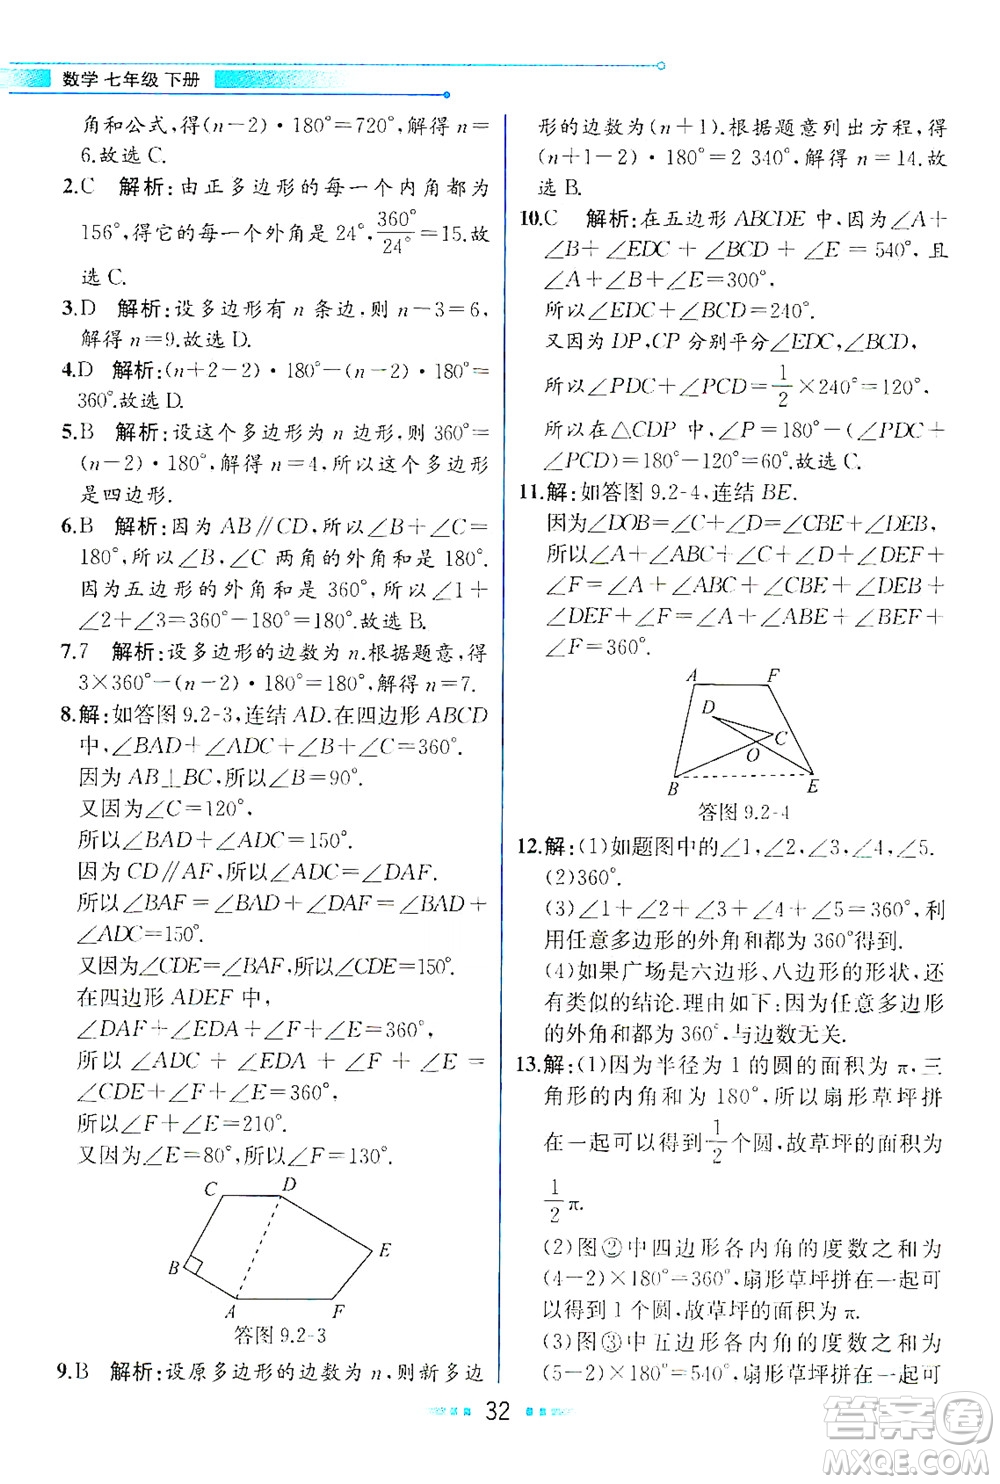 数学 七年级 下册
角和公式,得(n-2)·180°=720°,解得n=
6.故选C.
2.C 解析:由正多边形的每一个内角都为
156°,得它的每一个外角是24°,360°/24°=15.故
选C.
3.D 解析:设多边形有n条边,则n-3=6,
解得n=9.故选D.
4.D 解析:(n+2-2)·180°-(n-2)·180°=
360°.故选D.
5.B 解析:设这个多边形为n边形,则360°=
(n-2)·180°,解得n=4,所以这个多边形
是四边形.
6.B 解析:因为AB∥CD,所以∠B+∠C=
180°,所以∠B,∠C两角的外角和是180°.
因为五边形的外角和是360°,所以∠1+
∠2+∠3=360°-180°=180°.故选B.
7.7 解析:设多边形的边数为n.根据题意,得
3×360°-(n-2)·180°=180°,解得n=7.
8.解:如答图9.2-3,连结AD.在四边形ABCD
中,∠BAD+∠ADC+∠B+∠C=360°.
因为AB⊥BC,所以∠B=90°.
又因为∠C=120°,
所以∠BAD+∠ADC=150°.
因为CD∥AF,所以∠ADC=∠DAF.
所以∠BAF=∠BAD+∠DAF=∠BAD+
∠ADC=150°.
又因为∠CDE=∠BAF,所以∠CDE=150°.
在四边形ADEF中,
∠DAF+∠EDA+∠F+∠E=360°,
所以∠ADC+∠EDA+∠F+∠E=
∠CDE+∠F+∠E=360°.
所以∠F+∠E=210°.
又因为∠E=80°,所以∠F=130°.
C D
E
B
A F
答图9.2-3
9.B 解析:设原多边形的边数为n,则新多边
形的边数为(n+1).根据题意列出方程,得
(n+1-2)·180°=2 340°,解得n=14.故
选B.
10.C 解析:在五边形ABCDE中,因为∠A+
∠B+∠EDC+∠BCD+∠E=540°,且
∠A+∠B+∠E=300°,
所以∠EDC+∠BCD=240°.
又因为DP,CP分别平分∠EDC,∠BCD,
所以∠PDC+∠PCD=1/2×240°=120°,
所以在△CDP中,∠P=180°-(∠PDC+
∠PCD)=180°-120°=60°.故选C.
11.解:如答图9.2-4,连结BE.
因为∠DOB=∠C+∠D=∠CBE+∠DEB,
所以∠A+∠ABC+∠C+∠D+∠DEF+
∠F=∠A+∠ABC+∠CBE+∠DEB+
∠DEF+∠F=∠A+∠ABE+∠BEF+
∠F=360°.
A F
D
C
O
B E
答图9.2-4
12.解:(1)如题图中的∠1,∠2,∠3,∠4,∠5.
(2)360°.
(3)∠1+∠2+∠3+∠4+∠5=360°,利
用任意多边形的外角和都为360°得到.
(4)如果广场是六边形、八边形的形状,还
有类似的结论.理由如下:因为任意多边形
的外角和都为360°,与边数无关.
13.解:(1)因为半径为1的圆的面积为π,三
角形的内角和为180°,所以扇形草坪拼
在一起可以得到1/2个圆,故草坪的面积为
1/2π.
(2)图②中四边形各内角的度数之和为
(4-2)×180°=360°,扇形草坪拼在一起可
以得到1个圆,故草坪的面积为π.
(3)图③中五边形各内角的度数之和为
(5-2)×180°=540°,扇形草坪拼在一起可
32
答案卷
MXQE.COM